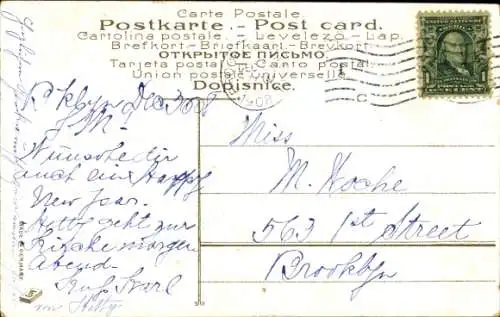 Carte Postale.
Postkarte. - Post card.
Cartolina postale. - Levelező-Lap.
Brefkort.-Briefkaart.-Brevkort.
ОТКРЫТОЕ ПИСЬМО
Tarjeta postal - Canto postal.
Union postale universelle
Dopisnice.
1908
C
1
B'klyn Dec 30/08
L. M.
Wünsche dir
auch ein Happy
New Year.
Hetty geht zur
Kirche morgen
Abend.
Gruß Karl
Hetty
Miss
M. Koche
563 1st Street
Brooklyn